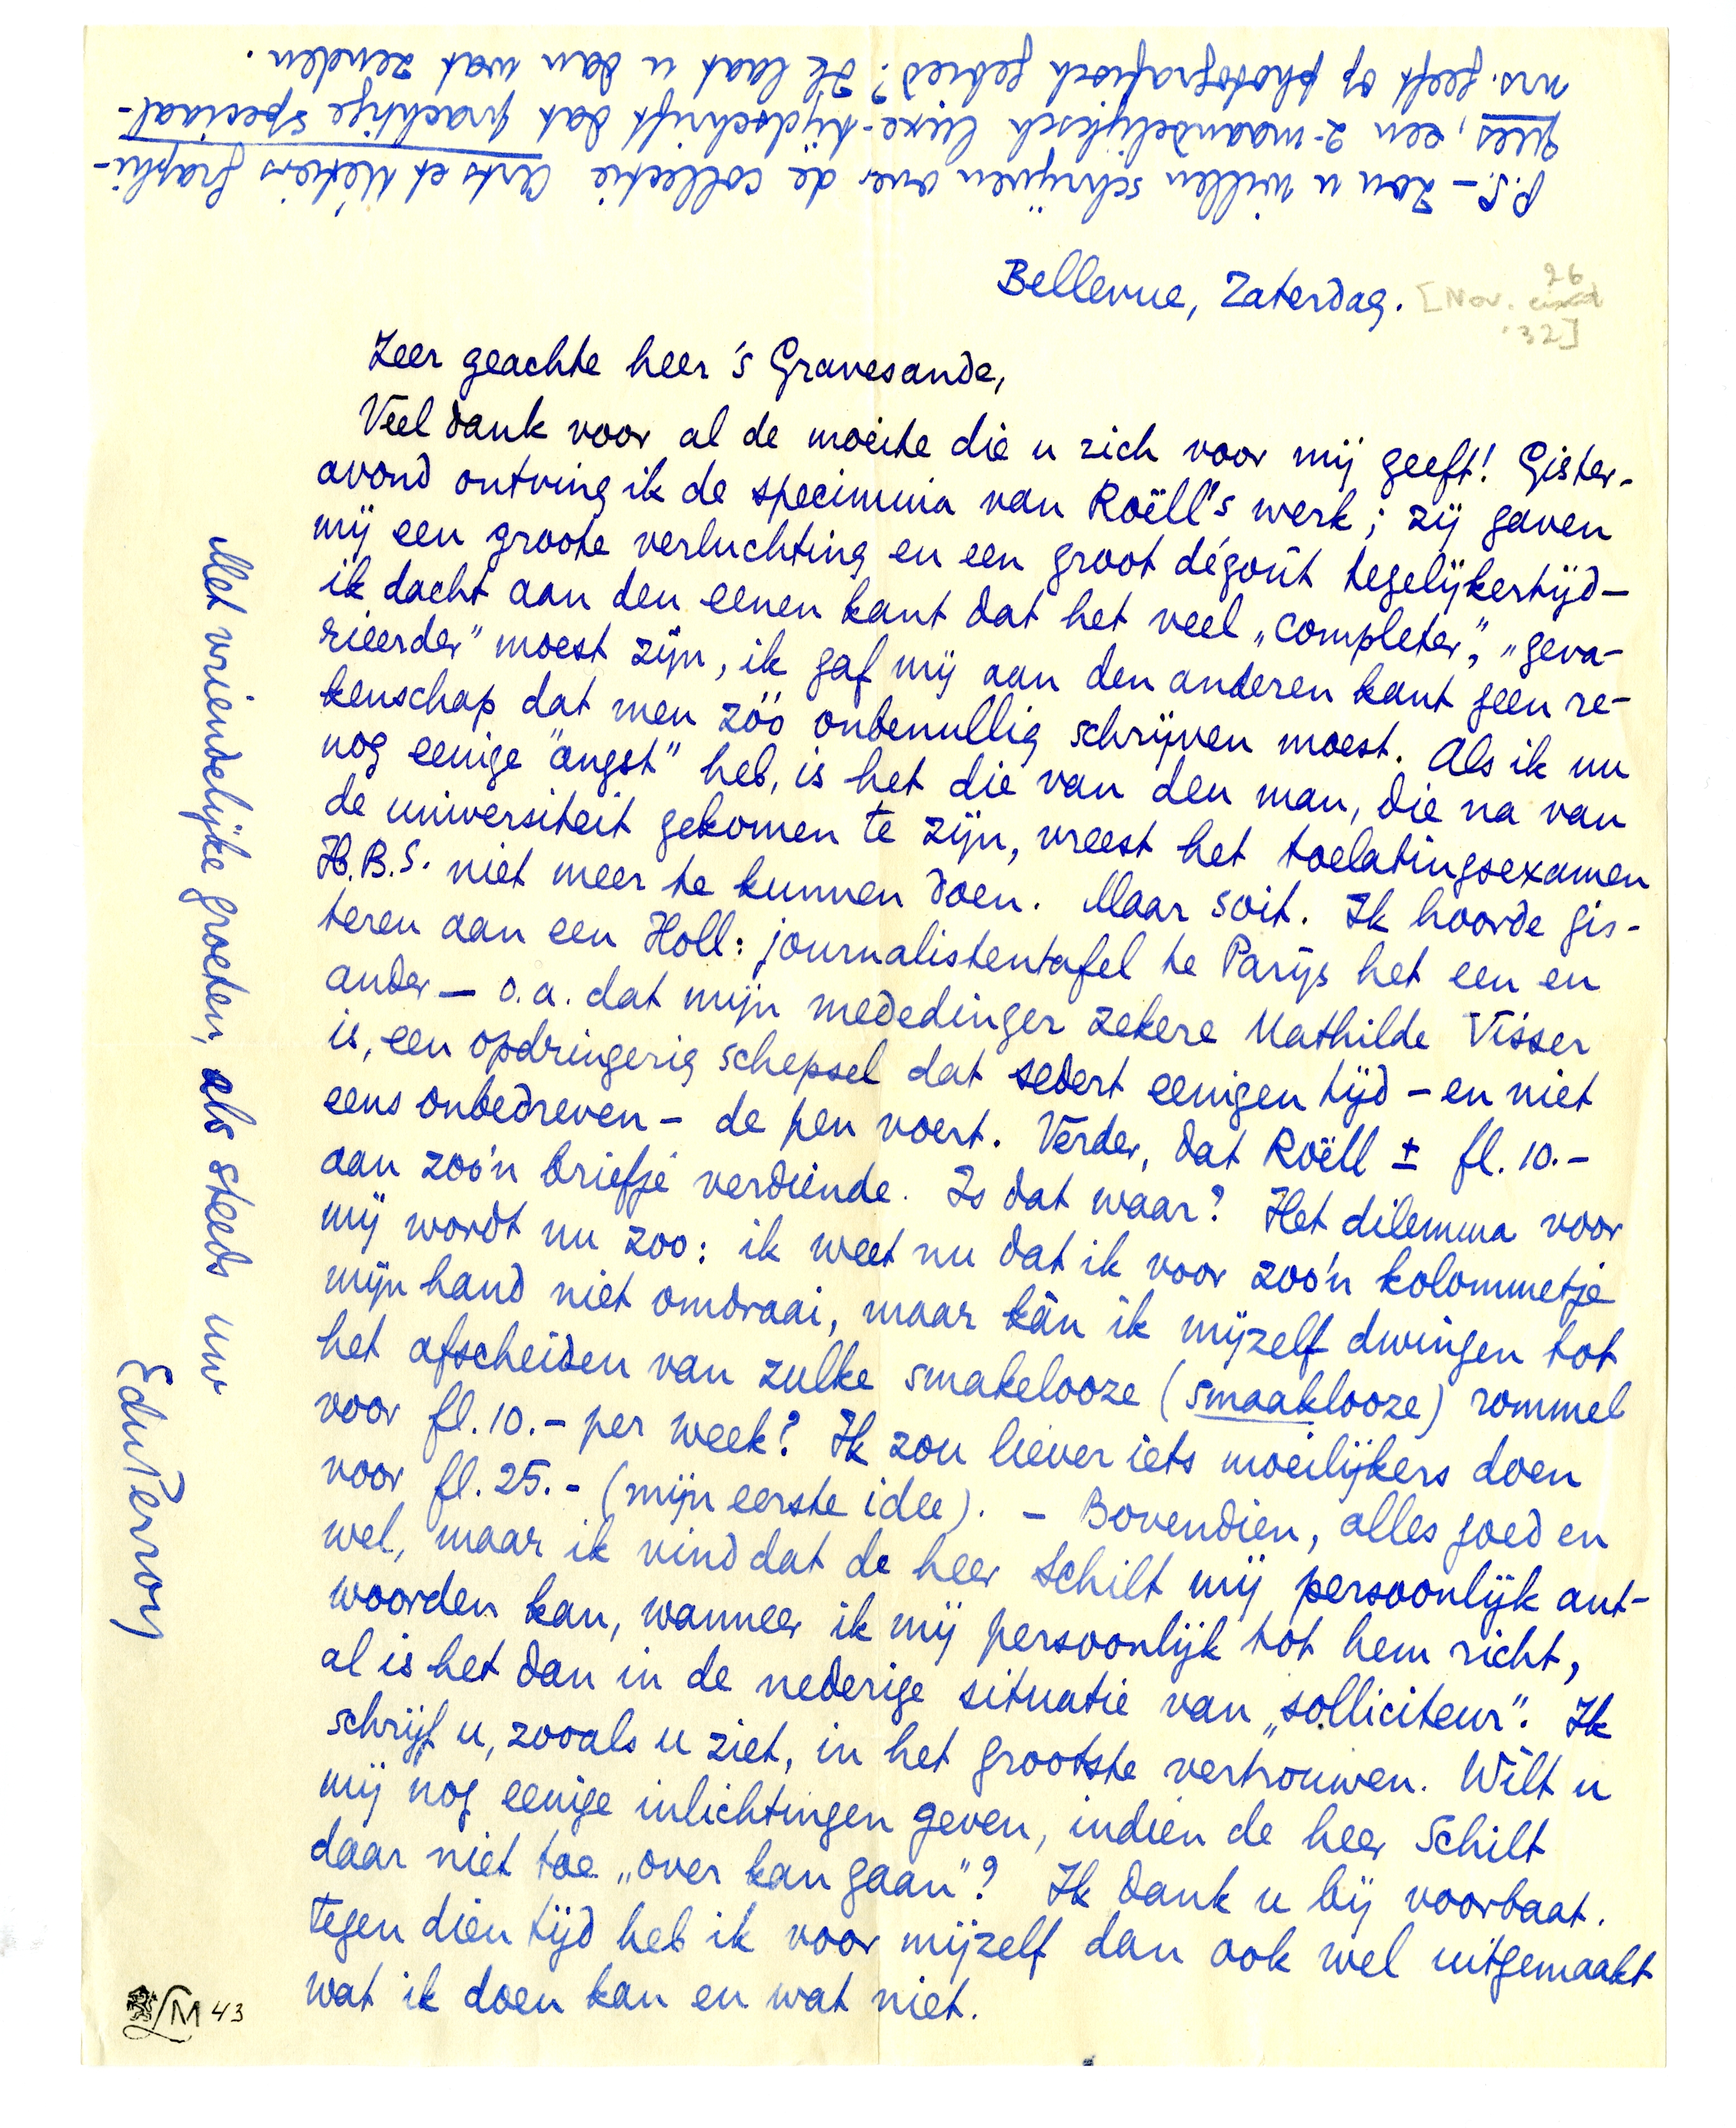 Bellevue, Zaterdag. [Nov. 26 '32]
Zeer geachte heer 's Gravesande,
Veel dank voor al de moeite die u zich voor mij geeft! Gister-
avond ontving ik de specimina van Roëll's werk; zij gaven
mij een groote verluchting en een groot dégoût tegelijkertijd —
ik dacht aan den eenen kant dat het veel „completer", „geva-
rieerder" moest zijn, ik gaf mij aan den anderen kant geen re-
kenschap dat men zóó onbenullig schrijven moest. Als ik nu
nog eenige "angst" heb, is het die van den man, die na van
de universiteit gekomen te zijn, vreest het toelatingsexamen
H.B.S. niet meer te kunnen doen. Maar soit. Ik hoorde gis-
teren aan een Holl: journalistentafel te Parijs het een en
ander — o.a. dat mijn mededinger zekere Mathilde Visser
is, een opdringerig schepsel dat sedert eenigen tijd – en niet
eens onbedreven – de pen voert. Verder, dat Roëll ± fl. 10.–
aan zoo'n briefje verdiende. Is dat waar? Het dilemma voor
mij wordt nu zoo: ik weet nu dat ik voor zoo'n kolommetje
mijn hand niet omdraai, maar kàn ik mijzelf dwingen tot
het afscheiden van zulke smakelooze (smaaklooze) rommel
voor fl. 10.– per week? Ik zou liever iets moeilijkers doen
voor fl. 25.– (mijn eerste idee). – Bovendien, alles goed en
wel, maar ik vind dat de heer Schilt mij persoonlijk ant-
woorden kan, wanneer ik mij persoonlijk tot hem richt,
al is het dan in de nederige situatie van „solliciteur". Ik
schrijf u, zooals u ziet, in het grootste vertrouwen. Wilt u
mij nog eenige inlichtingen geven, indien de heer Schilt
daar niet toe „over kan gaan"? Ik dank u bij voorbaat.
Tegen dien tijd heb ik voor mijzelf dan ook wel uitgemaakt
wat ik doen kan en wat niet.
Met vriendelijke groeten, als steeds uw
EduPerron
P.S. – Zou u willen schrijven over de collectie Arts et Métiers Graphi-
ques, een 2-maandelijksch luxe-tijdschrift dat prachtige speciaal-
nrs. geeft op photografisch gebied? Ik laat u dan wat zenden.
LM 43